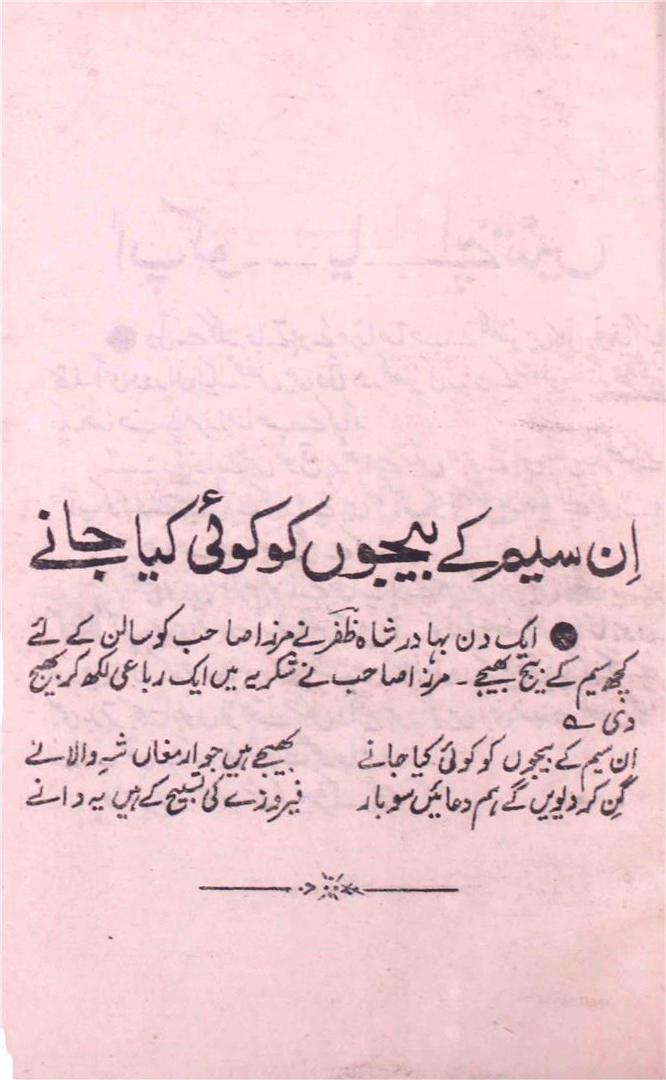 اِن سیم کے بیجوں کو کوئی کیا جانے
● ایک دن بہادر شاہ ظفر نے مرزا صاحب کو سالن کے لئے
کچھ سیم کے بیج بھیجے ۔ مرزا صاحب نے شکریہ میں ایک رباعی لکھ کر بھیج
دی ے
ان سیم کے بیجوں کو کوئی کیا جانے بھیجے ہیں جو ارمغاں شہِ والا نے
گِن کر دیویں گے ہم دعائیں سو بار فیروزے کی تسبیح کے ہیں یہ دانے